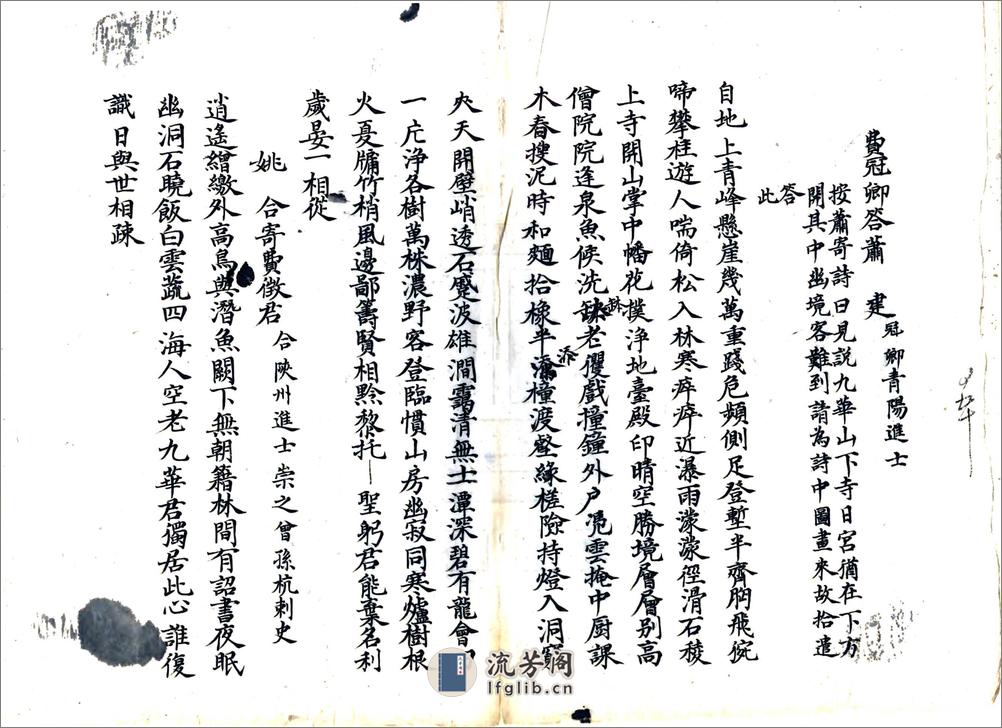 費冠卿答蕭建 冠卿青陽進士
按蕭寄詩曰見說九華山下寺日宮猶在下方
開其中幽境客難到請為詩中圖畫來故拾遺
答此
自地上青峰懸崖幾萬重踐危頻側足登塹半齊胸飛狖
啼攀桂遊人喘倚松入林寒瘁瘁近瀑雨濛濛徑滑石稜
上寺開山掌中幡花撲淨地臺殿印晴空勝境層層别高
僧院院逢泉魚候洗鉢老玃戲撞鐘外户凴雲掩中厨課
木舂搜泥時和麵拾橡半添穜渡壑緣槎險持燈入洞窮
夾天開壁峭透石蹙波雄澗靄清無土潭深碧有龍會
一片淨各樹萬株濃野客登臨慣山房幽寂同寒爐樹根
火夏牖竹梢風邊鄙籌賢相黔黎托聖躬君能棄名利
歲晏一相從
姚合寄費徵君 合陝州進士崇之曾孫杭刺史
逍遙繒繳外高鳥與潛魚闕下無朝籍林間有詔書夜眠
幽洞石曉飯白雲蔬四海人空老九華君獨居此心誰復
識日與世相疎
流芳阁
lfglib.cn